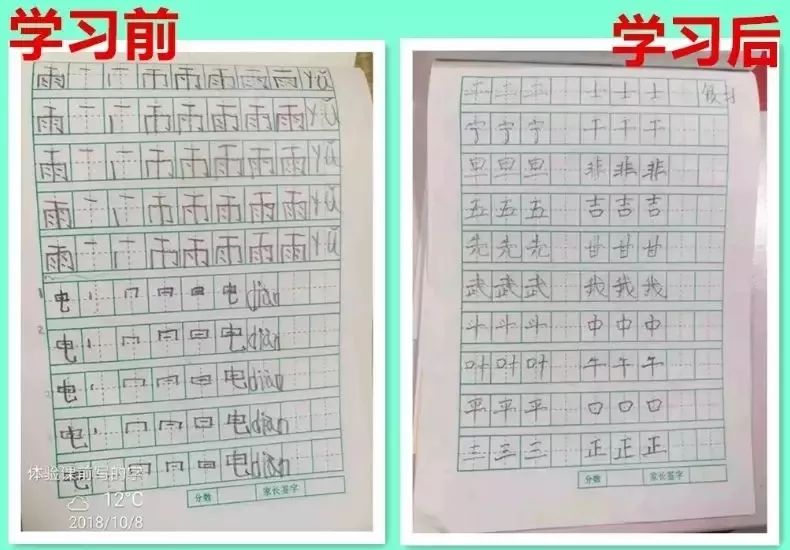 学习前
雨 一 厂 丙 雨 雨 雨 雨 yǔ
雨 一 厂 丙 雨 雨 雨 雨 yǔ
雨 一 厂 丙 雨 雨 雨 雨 yǔ
雨 一 厂 丙 雨 雨 雨 雨 yǔ
雨 一 厂 丙 雨 雨 雨 雨 yǔ
电 电 diàn
电 电 diàn
电 电 diàn
电 电 diàn
电 电 diàn
体验课前写的字
12°C
2018/10/8
分数 家长签字
学习后
平 平 平 士 士 士
宁 宁 宁 干 干 干
旦 旦 旦 非 非 非
五 五 五 吉 吉 吉
先 先 先 甘 甘 甘
武 武 武 我 我 我
斗 斗 斗 中 中 中
叶 叶 叶 午 午 午
平 平 平 口 口 口
三 三 三 正 正 正
分数 家长签字